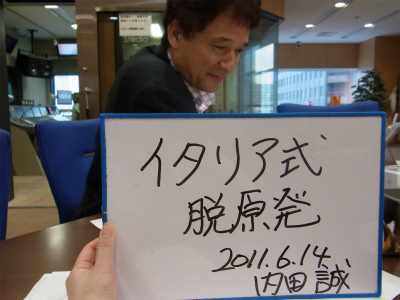 イタリア式
脱原発
2011.6.14
内田 誠